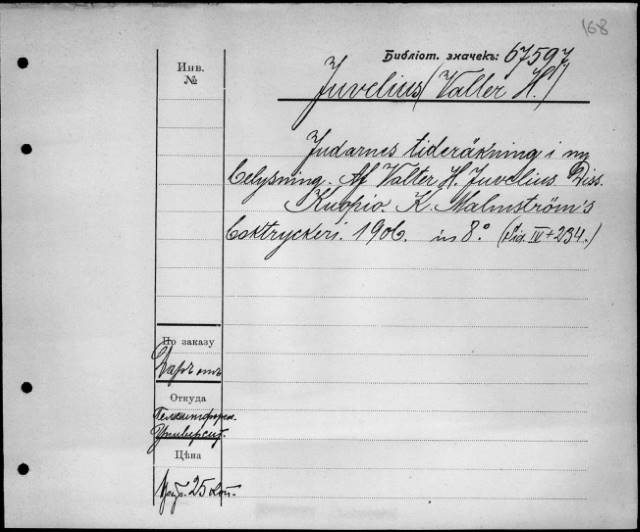 168
Библіот. значекъ: 67597
Инв.
№
Juvelius (Valter H.)
Judarnes tideräkning i ny
belysning. Af Valter H. Juvelius. Diss.
Kuopio. K. Malmström's
boktryckeri. 1906. in 8° (Sid. IV + 234.)
По заказу
Даръ отъ
Откуда
Гельсингфорск.
Университ.
Цѣна
25 коп.